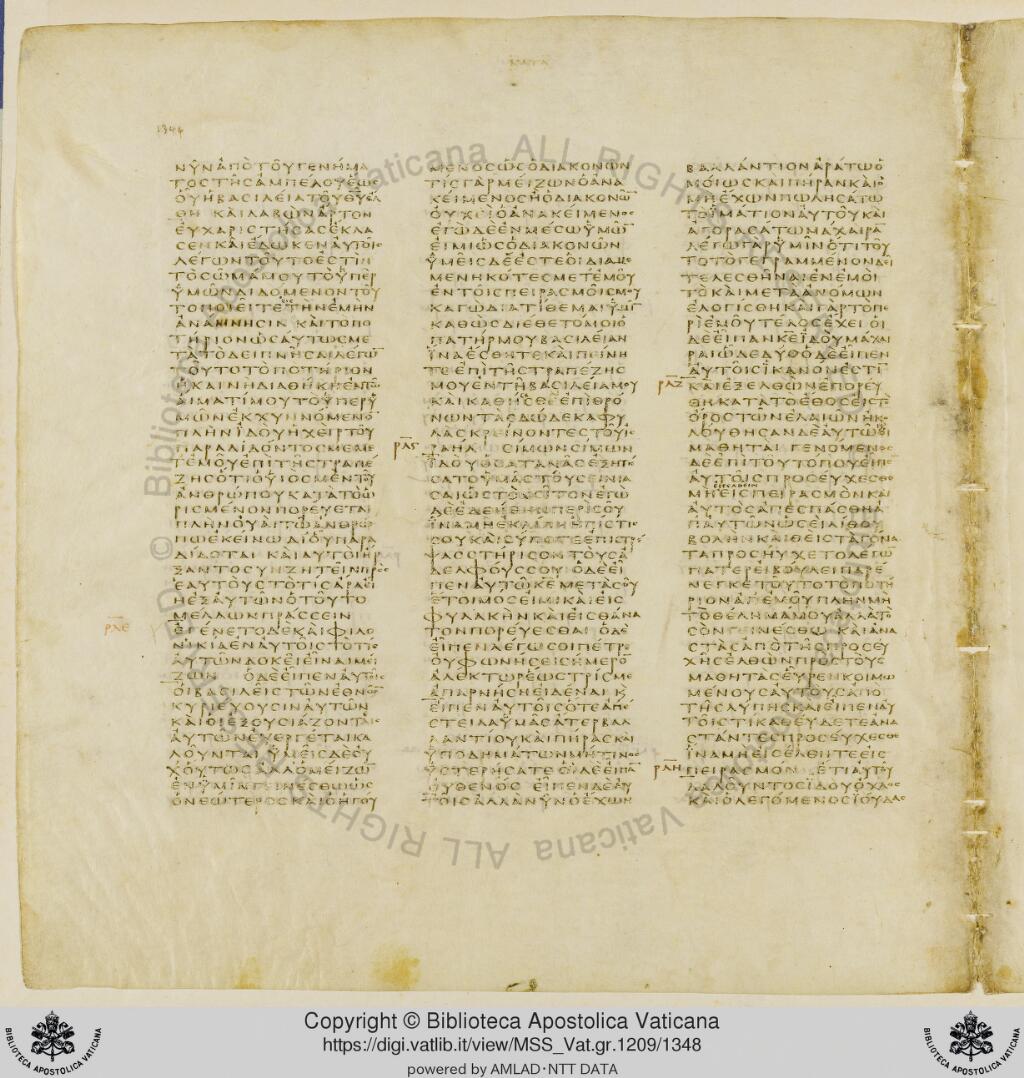 ΜΑΤΑ
1344
ΝΥΝΑΠΟΤΟΥΓΕΝΗΜΑ
ΤΟϹΤΗϹΑΜΠΕΛΟΥΕΩϹ
ΟΥΗΒΑϹΙΛΕΙΑΤΟΥΘ̅Υ̅ΕΛ
ΘΗ ΚΑΙΛΑΒΩΝΑΡΤΟΝ
ΕΥΧΑΡΙϹΤΗϹΑϹΕΚΛΑ
ϹΕΝΚΑΙΕΔΩΚΕΝΑΥΤΟΙϹ
ΛΕΓΩΝΤΟΥΤΟΕϹΤΙΝ
ΤΟϹΩΜΑΜΟΥΤΟΥΠΕΡ
ΥΜΩΝΔΙΔΟΜΕΝΟΝΤΟΥ
ΤΟΠΟΙΕΙΤΕΕΙϹΤΗΝΕΜΗΝ
ΑΝΑΜΝΗϹΙΝ ΚΑΙΤΟΠΟ
ΤΗΡΙΟΝΩϹΑΥΤΩϹΜΕ
ΤΑΤΟΔΕΙΠΝΗϹΑΙΛΕΓΩ̅
ΤΟΥΤΟΤΟΠΟΤΗΡΙΟΝ
ΗΚΑΙΝΗΔΙΑΘΗΚΗΕΝΤΩ
ΑΙΜΑΤΙΜΟΥΤΟΥΠΕΡΥ
ΜΩΝΕΚΧΥΝΝΟΜΕΝΟ̅
ΠΛΗΝΙΔΟΥΗΧΕΙΡΤΟΥ
ΠΑΡΑΔΙΔΟΝΤΟϹΜΕΜΕ
ΤΕΜΟΥΕΠΙΤΗϹΤΡΑΠΕ
ΖΗϹΟΤΙΟΥΙΟϹΜΕΝΤΟΥ
ΑΝΘΡΩΠΟΥΚΑΤΑΤΟΩ
ΡΙϹΜΕΝΟΝΠΟΡΕΥΕΤΑΙ
ΠΛΗΝΟΥΑΙΤΩΑΝΘΡΩ
ΠΩΕΚΕΙΝΩΔΙΟΥΠΑΡΑ
ΔΙΔΟΤΑΙ ΚΑΙΑΥΤΟΙΗΡ
ΞΑΝΤΟϹΥΝΖΗΤΕΙΝΠΡΟϹ
ΕΑΥΤΟΥϹΤΟΤΙϹΑΡΑΕΙ
ΗΕΞΑΥΤΩΝΟΤΟΥΤΟ
ΜΕΛΛΩΝΠΡΑϹϹΕΙΝ
ΡΛΕ
ΕΓΕΝΕΤΟΔΕΚΑΙΦΙΛΟ
ΝΙΚΙΑΕΝΑΥΤΟΙϹΤΟΤΙϹ
ΑΥΤΩΝΔΟΚΕΙΕΙΝΑΙΜΕΙ
ΖΩΝ ΟΔΕΕΙΠΕΝΑΥΤΟΙϹ
ΟΙΒΑϹΙΛΕΙϹΤΩΝΕΘΝΩΝ
ΚΥΡΙΕΥΟΥϹΙΝΑΥΤΩΝ
ΚΑΙΟΙΕΞΟΥϹΙΑΖΟΝΤΕϹ
ΑΥΤΩΝΕΥΕΡΓΕΤΑΙΚΑ
ΛΟΥΝΤΑΙΥΜΕΙϹΔΕΟΥ
ΧΟΥΤΩϹΑΛΛΟΜΕΙΖΩ̅
ΕΝΥΜΙΝΓΙΝΕϹΘΩΩϹ
ΟΝΕΩΤΕΡΟϹΚΑΙΟΗΓΟΥ
ΜΕΝΟϹΩϹΟΔΙΑΚΟΝΩΝ
ΤΙϹΓΑΡΜΕΙΖΩΝΟΑΝΑ
ΚΕΙΜΕΝΟϹΗΟΔΙΑΚΟΝΩ̅
ΟΥΧΕΙΟΑΝΑΚΕΙΜΕΝΟϹ
ΕΓΩΔΕΕΝΜΕϹΩΥΜΩ̅
ΕΙΜΙΩϹΟΔΙΑΚΟΝΩΝ
ΥΜΕΙϹΔΕΕϹΤΕΟΙΔΙΑΜΕ
ΜΕΝΗΚΟΤΕϹΜΕΤΕΜΟΥ
ΕΝΤΟΙϹΠΕΙΡΑϹΜΟΙϹΜΟΥ
ΚΑΓΩΔΙΑΤΙΘΕΜΑΙΥΜΙ̅
ΚΑΘΩϹΔΙΕΘΕΤΟΜΟΙΟ
ΠΑΤΗΡΜΟΥΒΑϹΙΛΕΙΑΝ
ΙΝΑΕϹΘΗΤΕΚΑΙΠΕΙΝΗ
ΤΕΕΠΙΤΗϹΤΡΑΠΕΖΗϹ
ΜΟΥΕΝΤΗΒΑϹΙΛΕΙΑΜΟΥ
ΚΑΙΚΑΘΗϹΘΕΕΠΙΘΡΟ
ΝΩΝΤΑϹΔΩΔΕΚΑΦΥ
ΛΑϹΚΡΕΙΝΟΝΤΕϹΤΟΥΙϹ
ΡΛϚ
ΡΑΗΛ ϹΙΜΩΝϹΙΜΩΝ
ΙΔΟΥΟϹΑΤΑΝΑϹΕΞΗΤΗ
ϹΑΤΟΥΜΑϹΤΟΥϹΕΙΝΙΑ
ϹΑΙΩϹΤΟΝϹΙΤΟΝΕΓΩ
ΔΕΕΔΕΗΘΗΝΠΕΡΙϹΟΥ
ΙΝΑΜΗΕΚΛΙΠΗΗΠΙϹΤΙϹ
ϹΟΥΚΑΙϹΥΠΟΤΕΕΠΙϹΤΡΕ
ΨΑϹϹΤΗΡΙϹΟΝΤΟΥϹΑ
ΔΕΛΦΟΥϹϹΟΥ ΟΔΕΕΙ
ΠΕΝΑΥΤΩΚ̅Ε̅ΜΕΤΑϹΟΥ
ΕΤΟΙΜΟϹΕΙΜΙΚΑΙΕΙϹ
ΦΥΛΑΚΗΝΚΑΙΕΙϹΘΑΝΑ
ΤΟΝΠΟΡΕΥΕϹΘΑΙ ΟΔΕ
ΕΙΠΕΝΛΕΓΩϹΟΙΠΕΤΡΕ
ΟΥΦΩΝΗϹΕΙϹΗΜΕΡΟ̅
ΑΛΕΚΤΩΡΕΩϹΤΡΙϹΜΕ
ΑΠΑΡΝΗϹΗΕΙΔΕΝΑΙ Κ
ΕΙΠΕΝΑΥΤΟΙϹΟΤΕΑΠΕ
ϹΤΕΙΛΑΥΜΑϹΑΤΕΡΒΑΛ
ΛΑΝΤΙΟΥΚΑΙΠΗΡΑϹΚΑΙ
ΥΠΟΔΗΜΑΤΩΝΜΗΤΙΝΟϹ
ΥϹΤΕΡΗϹΑΤΕΟΙΔΕΕΙΠΑ̅
ΟΥΘΕΝΟϹ ΕΙΠΕΝΔΕΑΥ
ΤΟΙϹΑΛΛΑΝΥΝΟΕΧΩΝ
ΒΑΛΛΑΝΤΙΟΝΑΡΑΤΩΟ
ΜΟΙΩϹΚΑΙΠΗΡΑΝΚΑΙΟ
ΜΗΕΧΩΝΠΩΛΗϹΑΤΩ
ΤΟΙΜΑΤΙΟΝΑΥΤΟΥΚΑΙ
ΑΓΟΡΑϹΑΤΩΜΑΧΑΙΡΑ̅
ΛΕΓΩΓΑΡΥΜΙΝΟΤΙΤΟΥ
ΤΟΤΟΓΕΓΡΑΜΜΕΝΟΝΔΕΙ
ΤΕΛΕϹΘΗΝΑΙΕΝΕΜΟΙ
ΤΟΚΑΙΜΕΤΑΑΝΟΜΩΝ
ΕΛΟΓΙϹΘΗΚΑΙΓΑΡΤΟΠΕ
ΡΙΕΜΟΥΤΕΛΟϹΕΧΕΙ ΟΙ
ΔΕΕΙΠΑΝΚ̅Ε̅ΙΔΟΥΜΑΧΑΙ
ΡΑΙΩΔΕΔΥΟΟΔΕΕΙΠΕΝ
ΑΥΤΟΙϹΙΚΑΝΟΝΕϹΤΙ̅
ΡΛΖ
ΚΑΙΕΞΕΛΘΩΝΕΠΟΡΕΥ
ΘΗΚΑΤΑΤΟΕΘΟϹΕΙϹΤΟ
ΟΡΟϹΤΩΝΕΛΑΙΩΝΗΚΟ
ΛΟΥΘΗϹΑΝΔΕΑΥΤΩΟΙ
ΜΑΘΗΤΑΙ ΓΕΝΟΜΕΝΟϹ
ΔΕΕΠΙΤΟΥΤΟΠΟΥΕΙΠΕ̅
ΑΥΤΟΙϹΠΡΟϹΕΥΧΕϹΘΕ
ΕΙϹΕΛΘΕΙΝ
ΜΗΕΙϹΠΕΙΡΑϹΜΟΝΚΑΙ
ΑΥΤΟϹΑΠΕϹΠΑϹΘΗΑ
ΠΑΥΤΩΝΩϹΕΙΛΙΘΟΥ
ΒΟΛΗΝΚΑΙΘΕΙϹΤΑΓΟΝΑ
ΤΑΠΡΟϹΗΥΧΕΤΟΛΕΓΩ̅
ΠΑΤΕΡΕΙΒΟΥΛΕΙΠΑΡΕ
ΝΕΓΚΕΤΟΥΤΟΤΟΠΟΤΗ
ΡΙΟΝΑΠΕΜΟΥΠΛΗΝΜΗ
ΤΟΘΕΛΗΜΑΜΟΥΑΛΛΑΤΟ
ϹΟΝΓΕΙΝΕϹΘΩ ΚΑΙΑΝΑ
ϹΤΑϹΑΠΟΤΗϹΠΡΟϹΕΥ
ΧΗϹΕΛΘΩΝΠΡΟϹΤΟΥϹ
ΜΑΘΗΤΑϹΕΥΡΕΝΚΟΙΜΩ
ΜΕΝΟΥϹΑΥΤΟΥϹΑΠΟ
ΤΗϹΛΥΠΗϹΚΑΙΕΙΠΕΝΑΥ
ΤΟΙϹΤΙΚΑΘΕΥΔΕΤΕΑΝΑ
ϹΤΑΝΤΕϹΠΡΟϹΕΥΧΕϹΘΕ
ΙΝΑΜΗΕΙϹΕΛΘΗΤΕΕΙϹ
ΡΛΗ
ΠΕΙΡΑϹΜΟΝ ΕΤΙΑΥΤΟΥ
ΛΑΛΟΥΝΤΟϹΙΔΟΥΟΧΛΟϹ
ΚΑΙΟΛΕΓΟΜΕΝΟϹΙΟΥΔΑϹ
© Biblioteca Apostolica Vaticana ALL RIGHTS RESERVED
Copyright © Biblioteca Apostolica Vaticana
https://digi.vatlib.it/view/MSS_Vat.gr.1209/1348
powered by AMLAD·NTT DATA
BIBLIOTECA APOSTOLICA VATICANA
BIBLIOTECA APOSTOLICA VATICANA